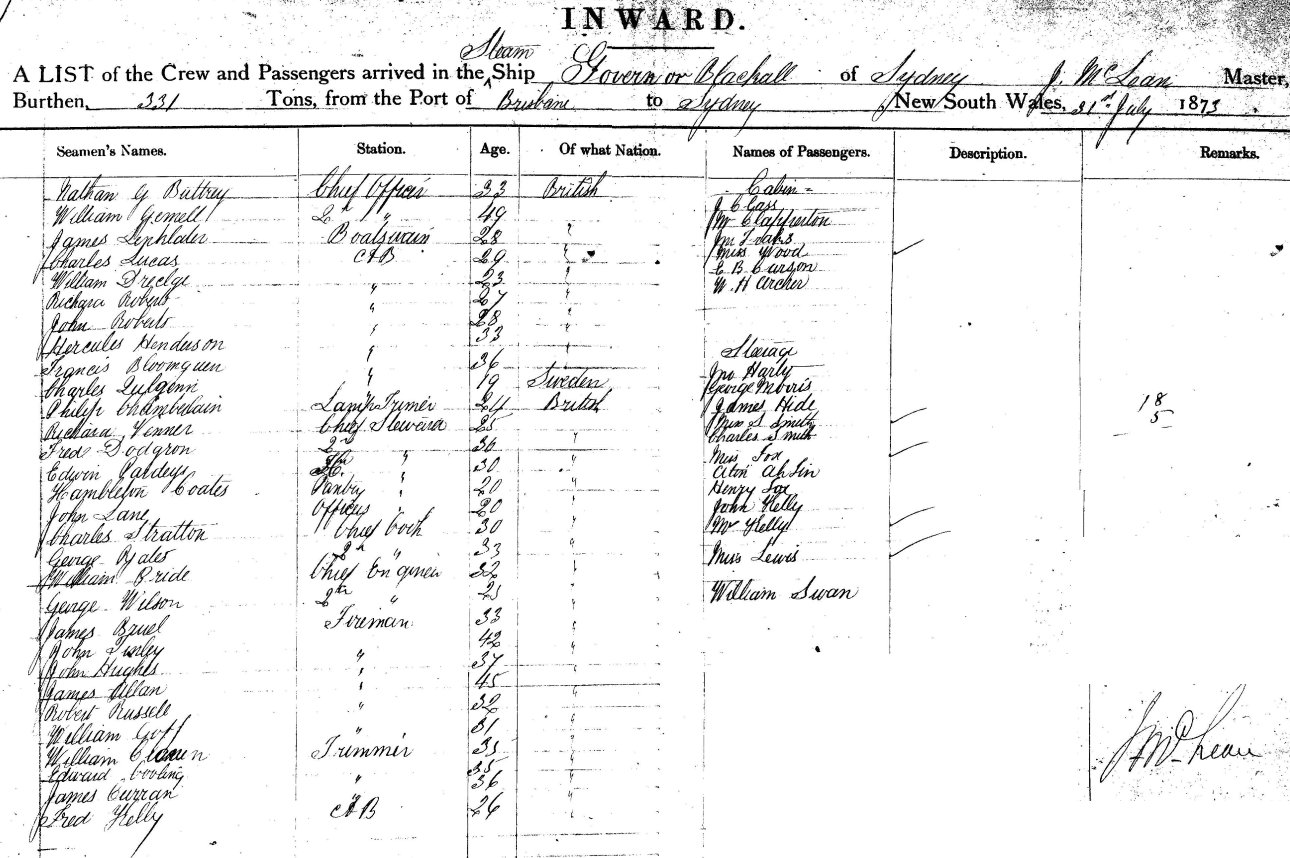 INWARD.
Steam
A LIST of the Crew and Passengers arrived in the Ship Governor Blackall of Sydney J. McLean Master,
Burthen, 331 Tons, from the Port of Brisbane to Sydney New South Wales, 31st July 1873
Seamen's Names. Station. Age. Of what Nation. Names of Passengers. Description. Remarks.
Nathan G Buttrey Chief Officer 33 British Cabin
William Gemell 2nd " 49 J C Cass
James Boatswain 28 " Mr Clapperton
Charles Lucas AB 29 " Miss Wood
William 23 " E B Curson
Richard Roberts " 27 " W. H Archer
John Roberts " 28 "
Hercules Henderson " 33 "
Francis " 36 " Steerage
Charles " 19 Sweden Jno Harty
Philip Chamberlain Lamp Trimer 24 British George Morris
Richard Venner Chief Steward 25 James Hide 18
Fred Dodgron 2nd " 30 " Miss S Smith 5
Edwin " 30 " Charles Smith
Hambleton Coates Pantry " 20 " Miss Fox
John Lane Officers " 20 Ah Lin
Charles Stratton Chief Cook 30 " Henry Fox
George 2nd " 33 " John Kelly
William Bride Chief Enginer 32 " Mr Kelly
George Wilson 2nd " " Miss Lewis
James Fireman 33 " William Swan
John " 42 "
John Hughes " 37 "
James Allan " 45 "
Robert Russell " 32 "
William Goff " 31 "
William Trimmer "
Edward Cooling " 35 "
James Curran " 36 "
Fred Kelly AB 26 "
J McLean